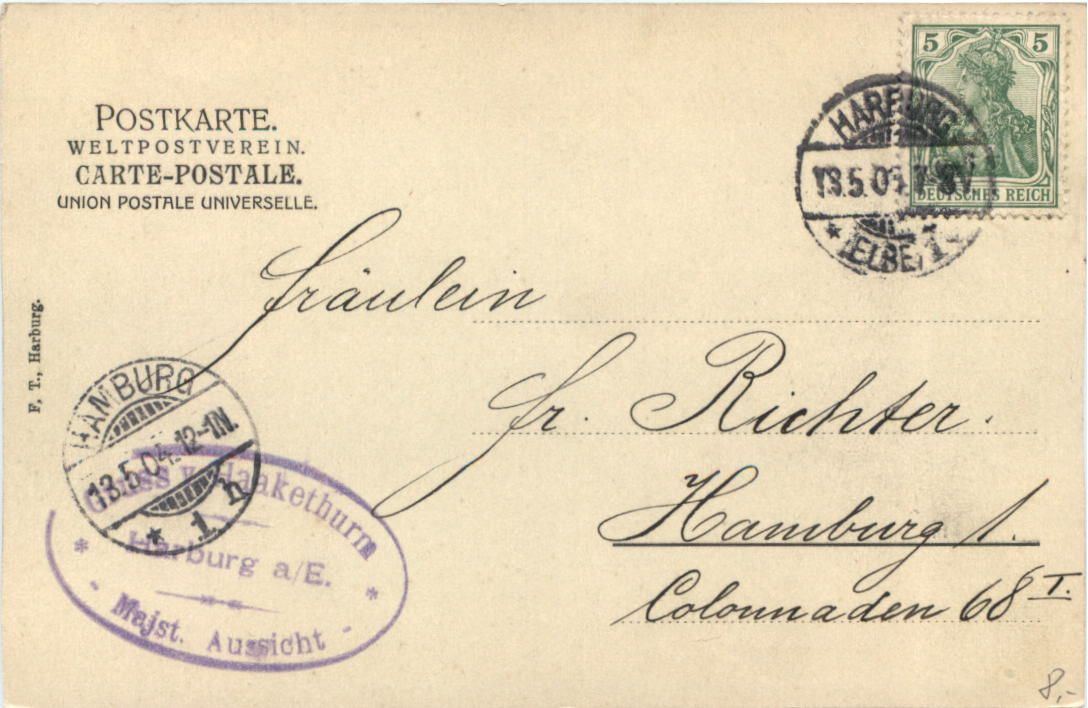 POSTKARTE.
WELTPOSTVEREIN.
CARTE-POSTALE.
UNION POSTALE UNIVERSELLE.
5 5
DEUTSCHES REICH
HARBURG
13.5.04.
* (ELBE) 1
Fräulein
Fr. Richter.
Hamburg 1.
Colonnaden 68 I.
F. T., Harburg.
HAMBURG
13.5.04. 12-1N.
* 1 h
Gruss v. Haakethurm
Harburg a/E.
- Majst. Aussicht -
8,-